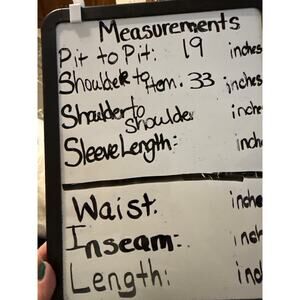 Measurements
Pit to Pit: 19 inches
Shoulder to Hem. 33 inches
Shoulder to Shoulder inche
Sleeve Length: inch
Waist. inche
Inseam: inch
Length: inc